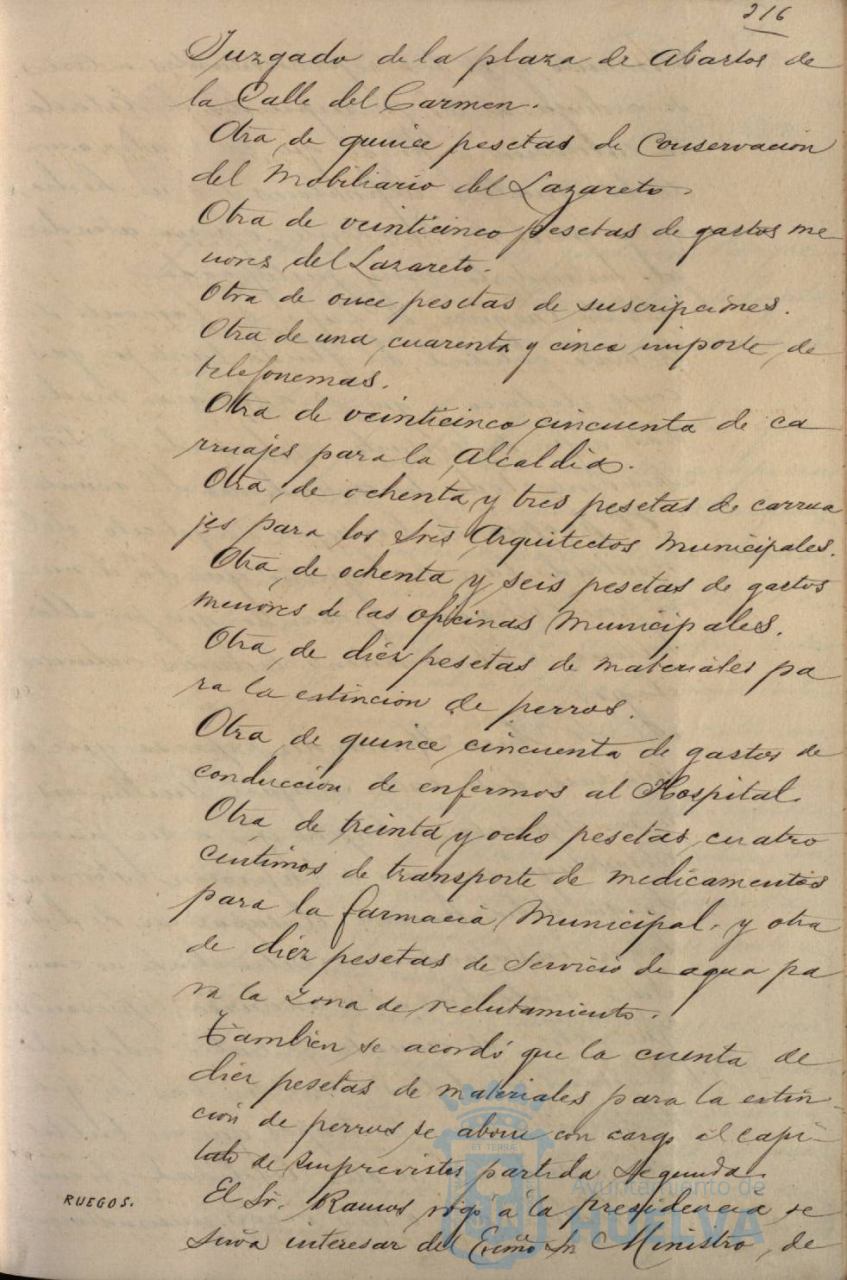 216
Juzgado de la plaza de Abastos de
la Calle del Carmen.
Otra, de quince pesetas de Conservación
del Mobiliario del Lazareto.
Otra de veinticinco pesetas de gastos me
nores del Lazareto.
Otra de once pesetas de suscripciones.
Otra de una, cuarenta y cinco importe, de
telefonemas.
Otra de veinticinco cincuenta de ca
rruajes para la Alcaldia.
Otra, de ochenta y tres pesetas de carrua
jes para los Sres Arquitectos Municipales.
Otra, de ochenta y seis pesetas de gastos
menores de las oficinas Municipales.
Otra, de diez pesetas de materiales pa
ra la estincion de perros.
Otra de quince cincuenta de gastos de
conduccion de enfermos al Hospital.
Otra de treinta y ocho pesetas, cuatro
centimos de transporte de medicamentos
para la farmacia Municipal, y otra
de diez pesetas de servicio de agua pa
ra la zona de reclutamiento.
Tambien, se acordó que la cuenta de
diez pesetas de materiales para la estin-
ción de perros, se abone con cargo al capi-
tulo de Imprevistos partida segunda.
RUEGOS.
El Sr. Ramos rogó á la presidencia, se
sirva interesar del Excmo Sr Ministro, de
ET TERRÆ
Ayuntamiento de
HUELVA